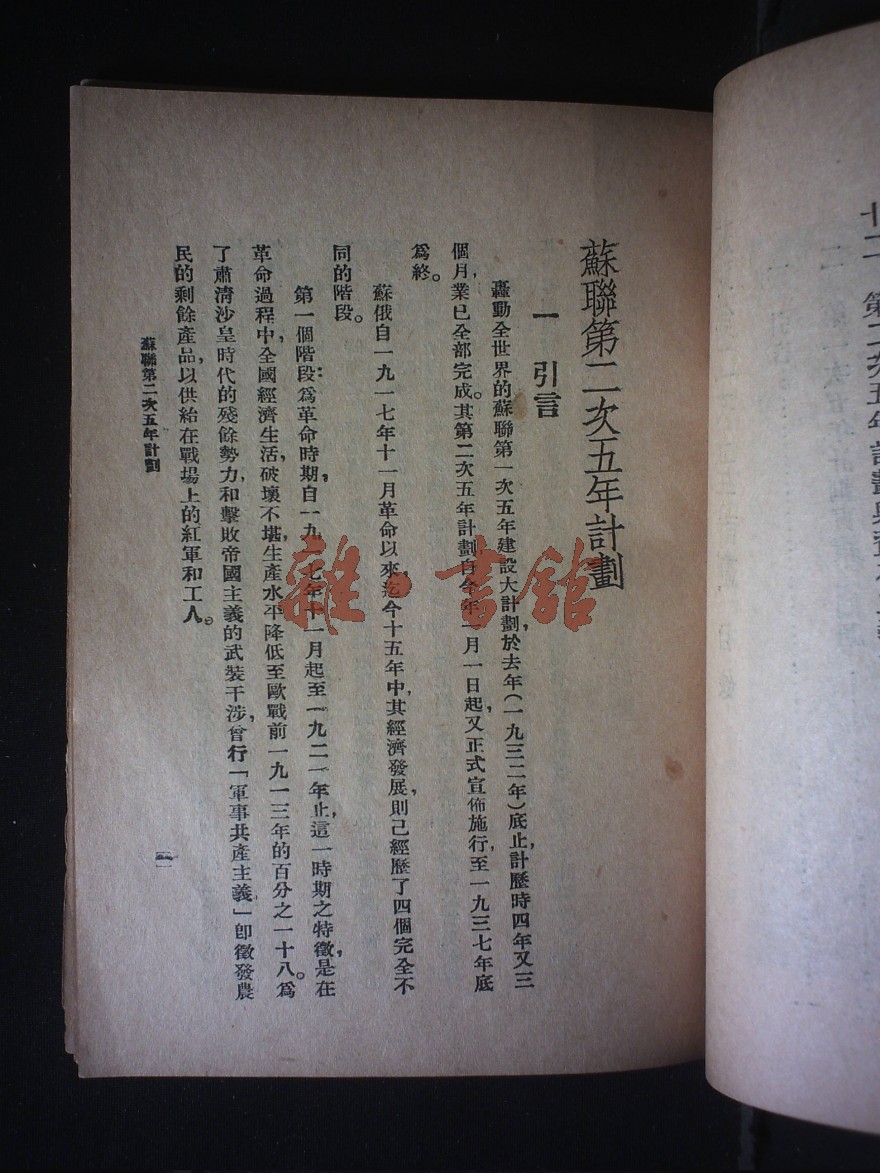 蘇聯第二次五年計劃
一 引言
轟動全世界的蘇聯第一次五年建設大計劃，於去年（一九三二年）底止，計歷時四年又三
個月，業已全部完成。其第二次五年計劃自今年一月一日起，又正式宣佈施行，至一九三七年底
爲終。
蘇俄自一九一七年十一月革命以來，迄今十五年中，其經濟發展，則已經歷了四個完全不
同的階段。
第一個階段：爲革命時期，自一九一七年十一月起至一九二一年止，這一時期之特徵，是在
革命過程中，全國經濟生活，破壞不堪，生產水平降低至歐戰前一九一三年的百分之一十八。爲
了肅清沙皇時代的殘餘勢力，和擊敗帝國主義的武裝干涉，曾行「軍事共產主義」即徵發農
民的剩餘產品，以供給在戰場上的紅軍和工人。
蘇聯第二次五年計劃
一
雜·書館